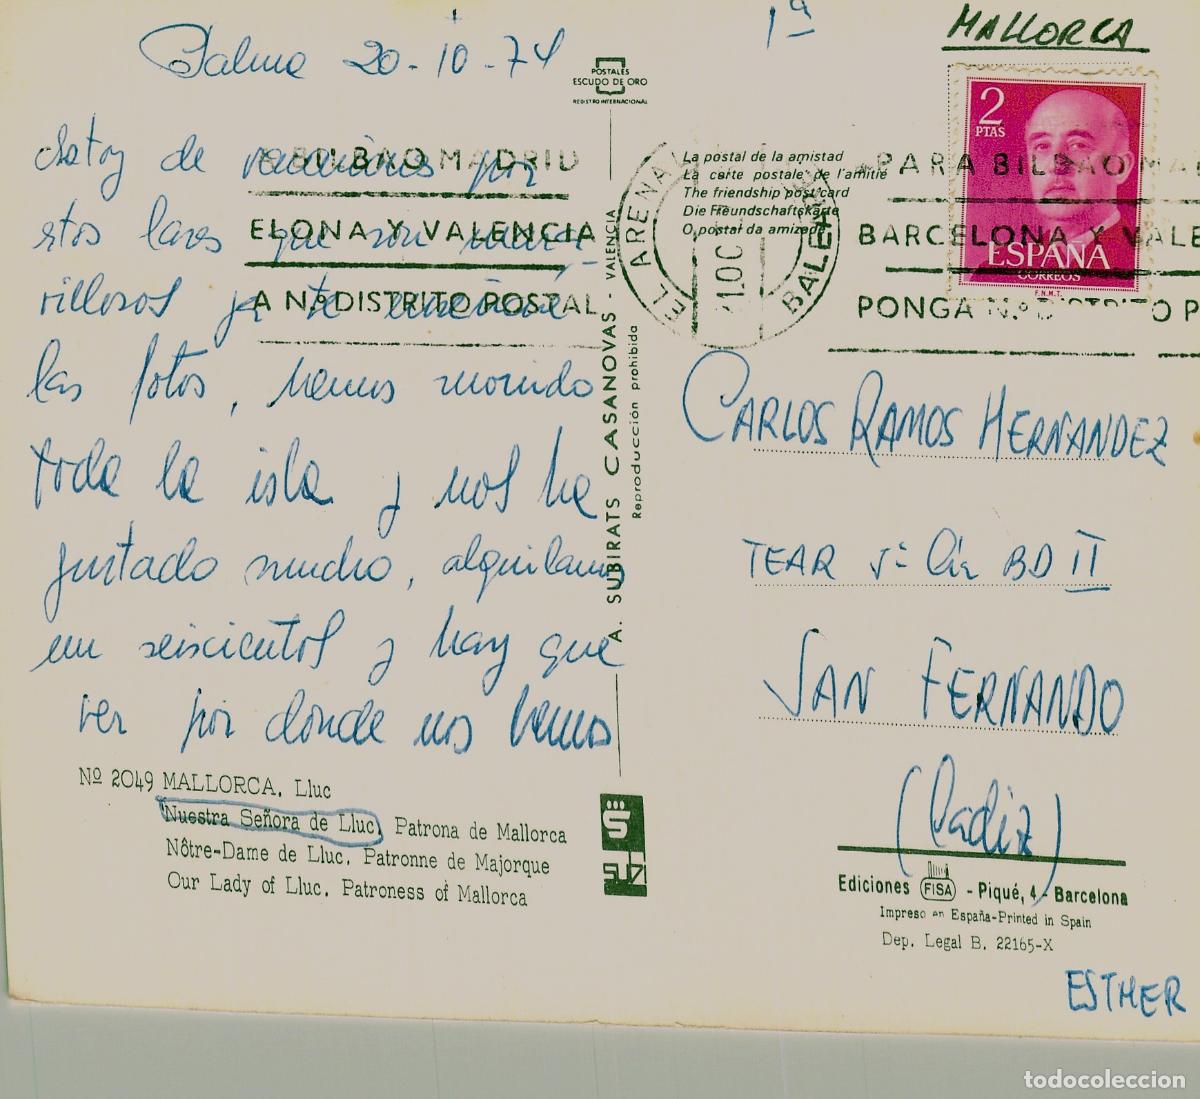 Palma 20-10-74
1ª
MALLORCA
Estoy de vacaciones por
estos lares que son mara-
villosos ya te enseñaré
las fotos, hemos recorrido
toda la isla y nos ha
gustado mucho, alquilamos
un seiscientos y hay que
ver por donde nos hemos
POSTALES
ESCUDO DE ORO
REGISTRO INTERNACIONAL
La postal de la amistad
La carte postale de l'amitié
The friendship post card
Die Freundschaftskarte
O postal da amizade
A. SUBIRATS CASANOVAS - VALENCIA
Reproducción prohibida
2
PTAS
ESPAÑA
CORREOS
F.N.M.T.
BILBAO MADRID
ELONA Y VALENCIA
A N.º DISTRITO POSTAL
EL ARENAL
BALEARES
PARA BILBAO MA
BARCELONA Y VALE
PONGA N.º D TO P
CARLOS RAMOS HERNANDEZ
TEAR 5ª Cía BD II
SAN FERNANDO
(Cadiz)
Nº 2049 MALLORCA. Lluc
Nuestra Señora de Lluc, Patrona de Mallorca
Nôtre-Dame de Lluc. Patronne de Majorque
Our Lady of Lluc. Patroness of Mallorca
Ediciones FISA - Piqué, 4 - Barcelona
Impreso en España-Printed in Spain
Dep. Legal B. 22165-X
ESTHER
todocoleccion